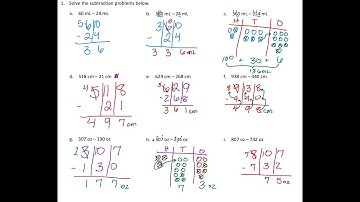 1. Solve the subtraction problems below.
a. 60 mL – 24 mL
b. 360 mL – 24 mL
c. 360 mL – 224 mL
5 6 10
- 2 4
3 6
- 2 4
3 3 6
H T O
100 + 30 + 6
136 mL
d. 518 cm – 21 cm
e. 629 cm – 268 cm
f. 938 cm – 440 cm
4 5 11 8
- 2 1
4 9 7 cm
5 6 12 9
- 2 6 8
3 6 1 cm
4 9 8 cm
g. 307 oz – 130 oz
h. 307 oz – 234 oz
i. 807 oz – 732 oz
2 3 10 7
- 1 3 0
1 7 7 oz
H T O
7 3 oz
7 8 10 7
- 7 3 2
7 5 oz